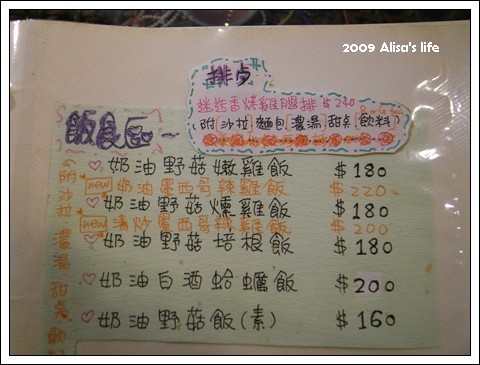 2009 Alisa's life
排点
迷迭香烤雞腿排 $240
(附 沙拉 麵包 濃湯 甜点 飲料)
飯食区~
♡奶油野菇嫩雞飯 $180
new 奶油墨西哥辣雞飯 $220
♡奶油野菇燻雞飯 $180
new 清炒墨西哥辣雞飯 $200
♡奶油野菇培根飯 $180
♡奶油白酒蛤蠣飯 $200
♡奶油野菇飯(素) $160
(附沙拉 濃湯 甜点 飲料